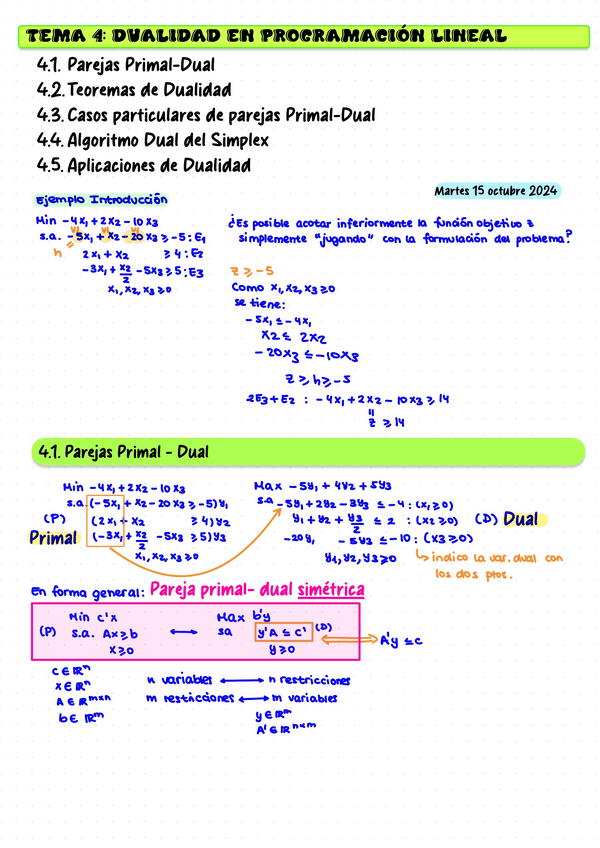 TEMA 4: DUALIDAD EN PROGRAMACIÓN LINEAL
4.1. Parejas Primal-Dual
4.2. Teoremas de Dualidad
4.3. Casos particulares de parejas Primal-Dual
4.4. Algoritmo Dual del Simplex
4.5. Aplicaciones de Dualidad
Martes 15 octubre 2024
Ejemplo Introducción
Min -4x₁ + 2x₂ - 10x₃
s.a. -5x₁ + x₂ - 20x₃ ≥ -5 : E₁
h
2x₁ + x₂ ≥ 4 : E₂
-3x₁ + x₂/2 - 5x₃ ≥ 5 : E₃
x₁, x₂, x₃ ≥ 0
¿Es posible acotar inferiormente la función objetivo z
simplemente "jugando" con la formulación del problema?
z ≥ -5
Como x₁, x₂, x₃ ≥ 0
se tiene:
-5x₁ ≤ -4x₁
x₂ ≤ 2x₂
-20x₃ ≤ -10x₃
z ≥ h ≥ -5
2E₃ + E₂ : -4x₁ + 2x₂ - 10x₃ ≥ 14
=
z ≥ 14
4.1. Parejas Primal - Dual
Min -4x₁ + 2x₂ - 10x₃
s.a. (-5x₁ + x₂ - 20x₃ ≥ -5) y₁
(P) (2x₁ + x₂ ≥ 4) y₂
Primal (-3x₁ + x₂/2 - 5x₃ ≥ 5) y₃
x₁, x₂, x₃ ≥ 0
Max -5y₁ + 4y₂ + 5y₃
s.a -5y₁ + 2y₂ - 3y₃ ≤ -4 : (x₁ ≥ 0)
y₁ + y₂ + y₃/2 ≤ 2 : (x₂ ≥ 0) (D) Dual
-20y₁ - 5y₃ ≤ -10 : (x₃ ≥ 0)
y₁, y₂, y₃ ≥ 0
indico la var. dual con
los dos ptos.
En forma general: Pareja primal- dual simétrica
Min c'x
(P) s.a. Ax ≥ b
x ≥ 0
Max b'y
sa y'A ≤ c' (D)
y ≥ 0
A'y ≤ c
c ∈ ℝⁿ
x ∈ ℝⁿ
A ∈ ℝᵐˣⁿ
b ∈ ℝᵐ
n variables ↔ n restricciones
m restricciones ↔ m variables
y ∈ ℝᵐ
A' ∈ ℝⁿˣᵐ